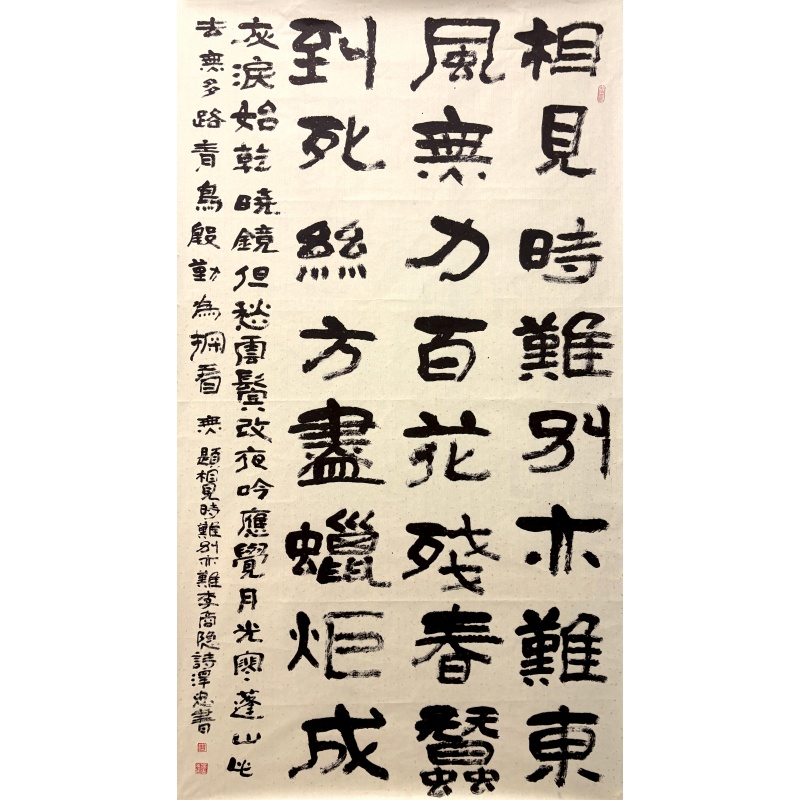 相見時難別亦難東
風無力百花殘春蠶
到死絲方盡蠟炬成
灰淚始乾曉鏡但愁雲鬢改夜吟應覺月光寒蓬山此
去無多路青鳥殷勤為探看 無題相見時難別亦難李商隐詩澤忠書